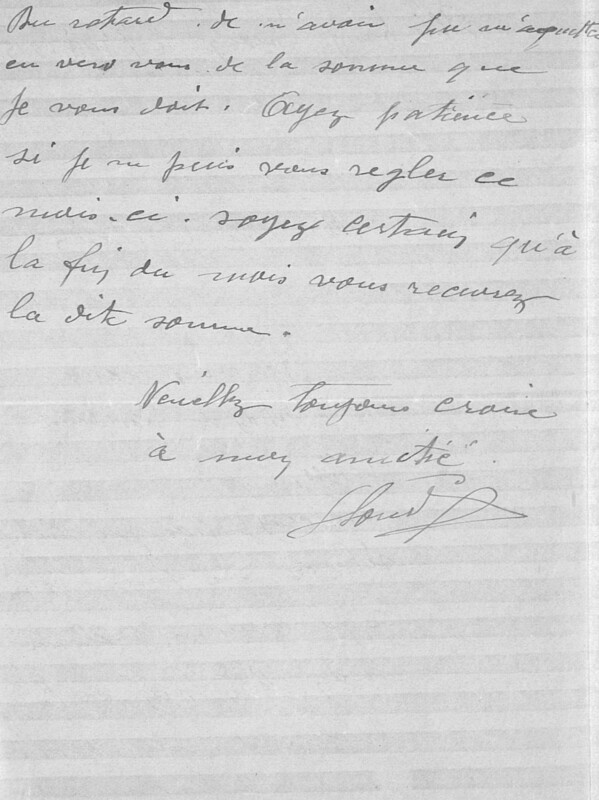 Du retard. de n'avoir pu m'aquitter
en vers vous de la somme que
je vous doit. Ayez patience
si je ne puis vous regler ce
mois-ci. soyez certain qu'à
la fin du mois vous recevrez
la dite somme.
Veuillez toujours croire
à mon amitié.